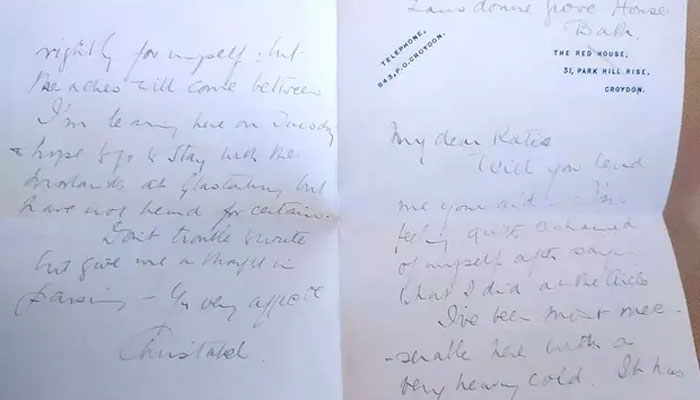 Lansdowne Grove House
Bath.
TELEPHONE,
843, P.O. CROYDON.
THE RED HOUSE,
31, PARK HILL RISE,
CROYDON.
My dear Katie
Will you lend
me your aid. I'm
feeling quite ashamed
of myself after
what I did at the
I've been most mee-
-serable here with a
very heavy cold. It has
rightly for myself but
the aches will come between
I'm leaving here on Tuesday
& hope to go to stay with the
at Glastonbury but
have not heard for certain.
Don't trouble to write
but give me a thought in
passing - Yr very affecte
Christabel.